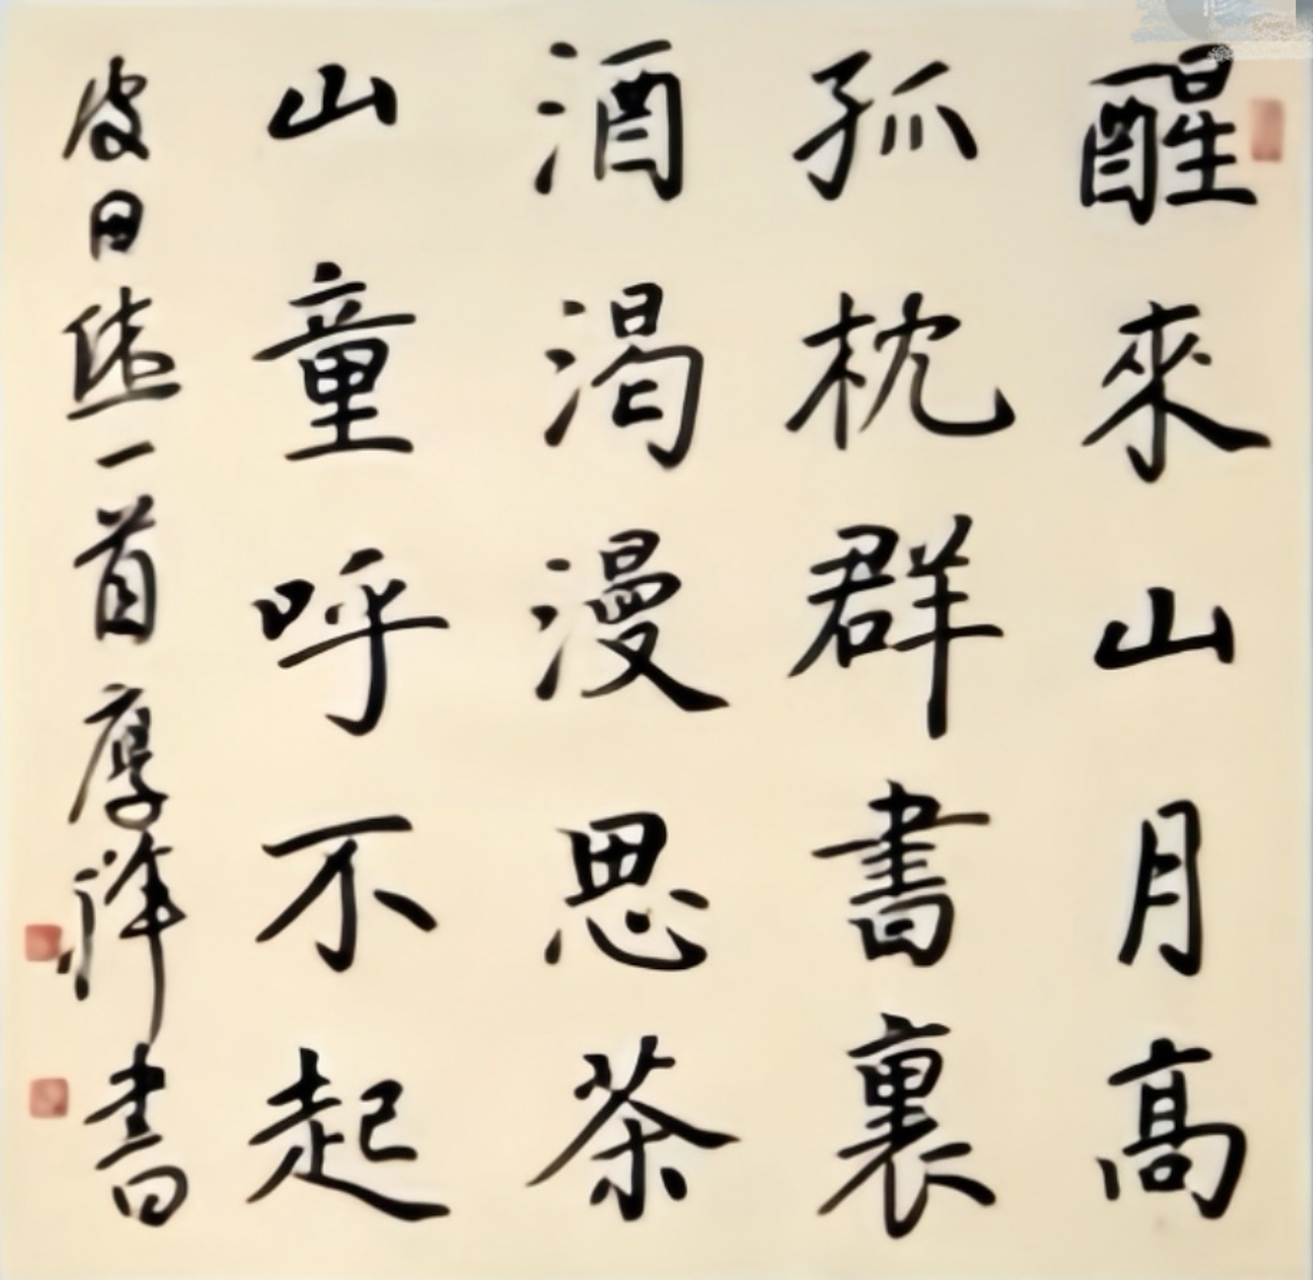 醒來山月高
孤枕群書裏
酒渴漫思茶
山童呼不起
皮日休一首厚祥書